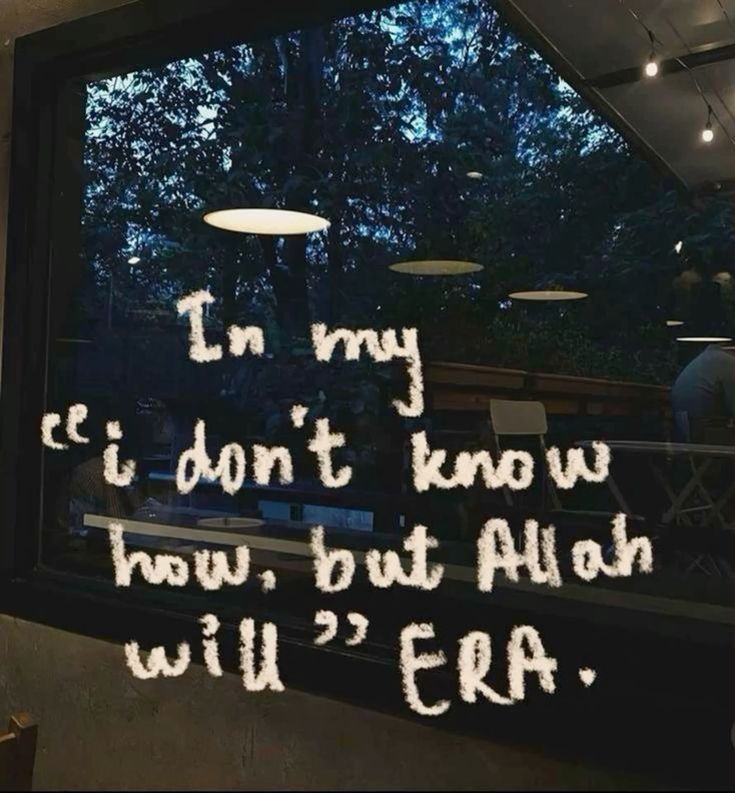 In my
“i don't know
how, but Allah
will” ERA.